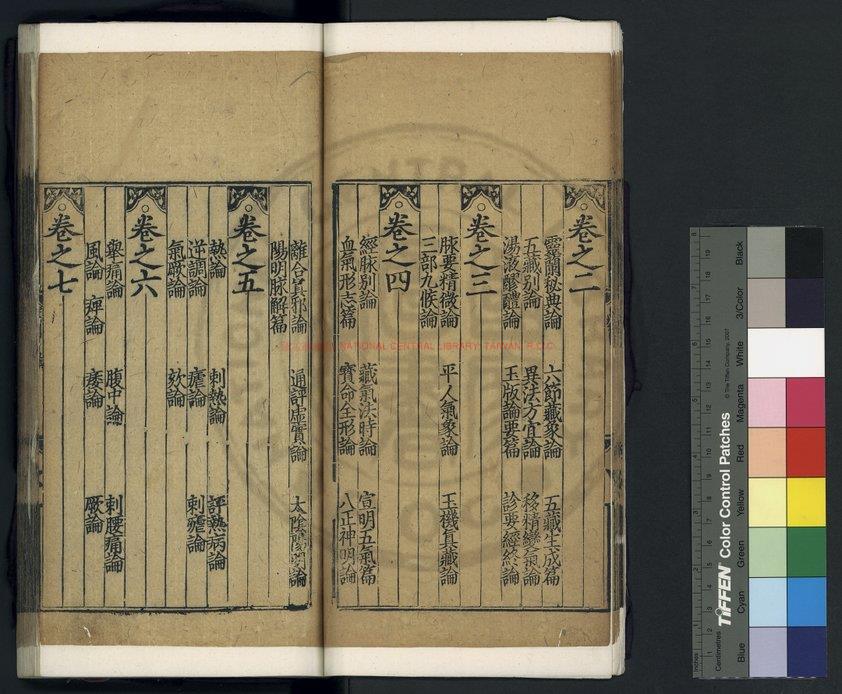 卷之二
靈蘭秘典論 六節藏象論 五藏生成篇
五藏別論 異法方宜論 移精變氣論
湯液醪醴論 玉版論要篇 診要經終論
卷之三
脉要精微論 平人氣象論 玉機真藏論
三部九候論
卷之四
經脉別論 藏氣法時論 宣明五氣篇
血氣形志篇 寶命全形論 八正神明論
離合真邪論 通評虛實論 太陰陽明論
陽明脉解篇
卷之五
熱論 刺熱論 評熱病論
逆調論 瘧論 刺瘧論
氣厥論 欬論
卷之六
舉痛論 腹中論 刺腰痛論
風論 痺論 痿論 厥論
卷之七
NATIONAL CENTRAL LIBRARY, TAIWAN, R.O.C.
TIFFEN Color Control Patches
© The Tiffen Company, 2007
Blue Cyan Green Yellow Red Magenta White 3/Color Black
Inches
Centimetres